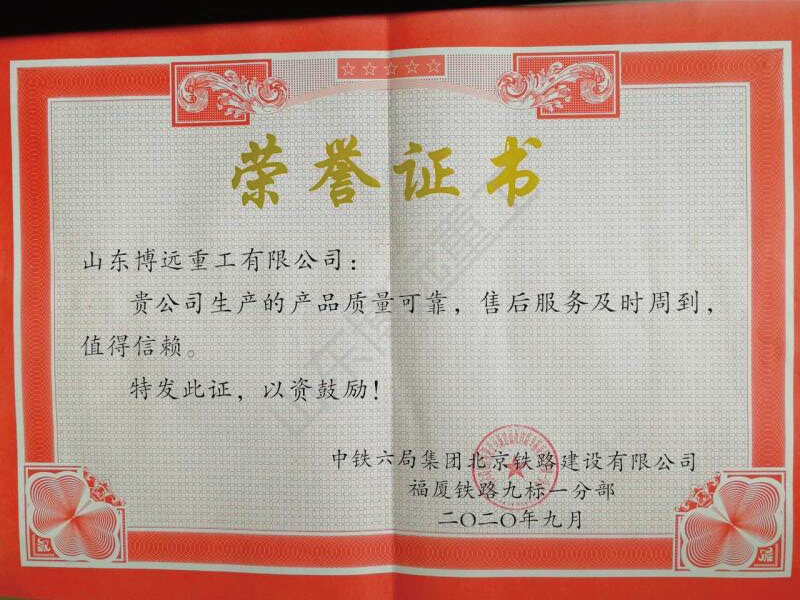 荣誉证书
山东博远重工有限公司：
贵公司生产的产品质量可靠，售后服务及时周到，
值得信赖。
特发此证，以资鼓励！
中铁六局集团北京铁路建设有限公司
福厦铁路九标一分部
二〇二〇年九月
山东博远重工